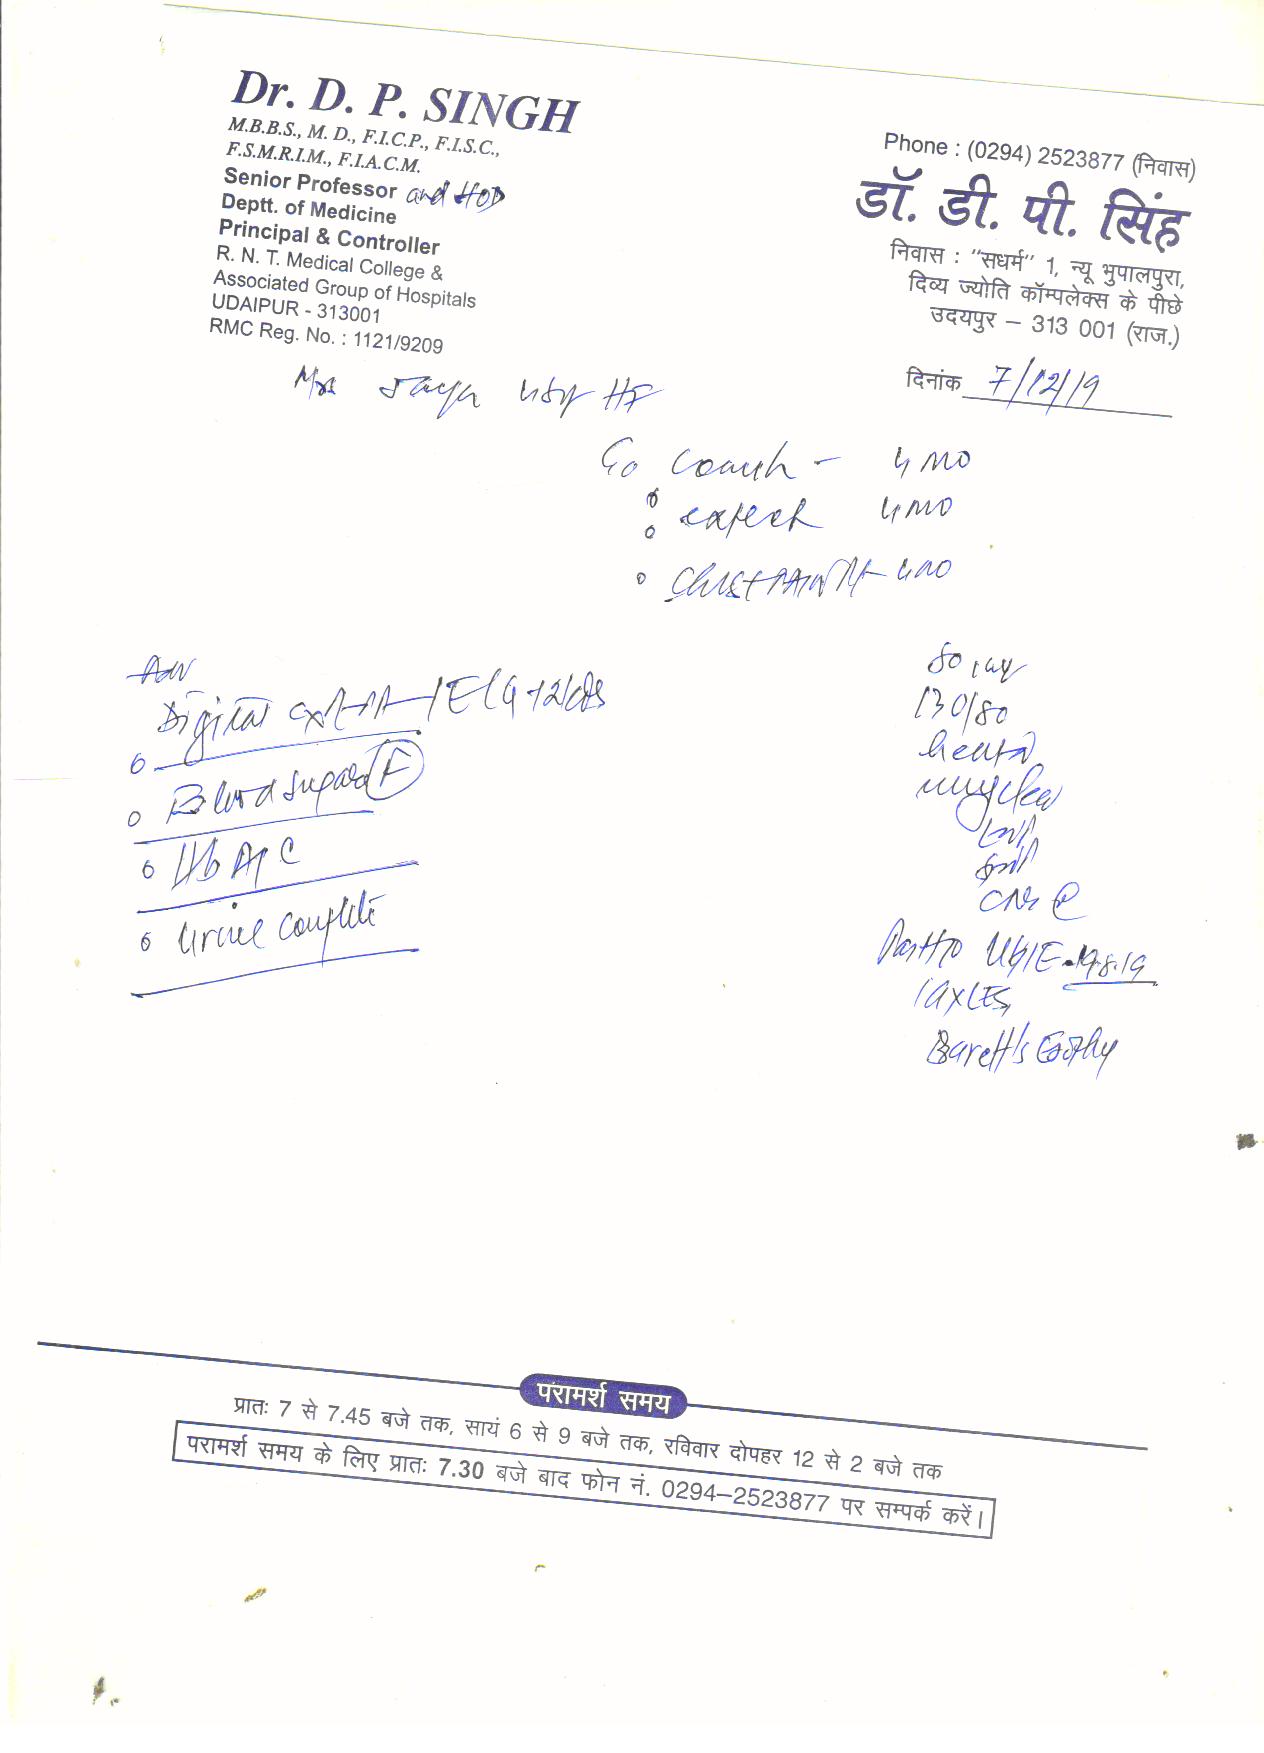 Dr. D. P. SINGH
M.B.B.S., M. D., F.I.C.P., F.I.S.C.,
F.S.M.R.I.M., F.I.A.C.M.
Senior Professor and HOD
Deptt. of Medicine
Principal & Controller
R. N. T. Medical College &
Associated Group of Hospitals
UDAIPUR - 313001
RMC Reg. No. : 1121/9209
Phone : (0294) 2523877 (निवास)
डॉ. डी. पी. सिंह
निवास : "सधर्म" 1, न्यू भुपालपुरा,
दिव्य ज्योति कॉम्पलेक्स के पीछे
उदयपुर – 313 001 (राज.)
दिनांक 7/12/19
Mrs Jaya
C/o Cough - 4 MO
expect 4 MO
Chest pain
Adv
Digital ECG 12
Blood sugar F
HbA1C
Urine Complete
130/80
CNS
UGIE - 19.8.19
LAX LES,
Barett's
परामर्श समय
प्रातः 7 से 7.45 बजे तक, सायं 6 से 9 बजे तक, रविवार दोपहर 12 से 2 बजे तक
परामर्श समय के लिए प्रातः 7.30 बजे बाद फोन नं. 0294–2523877 पर सम्पर्क करें।